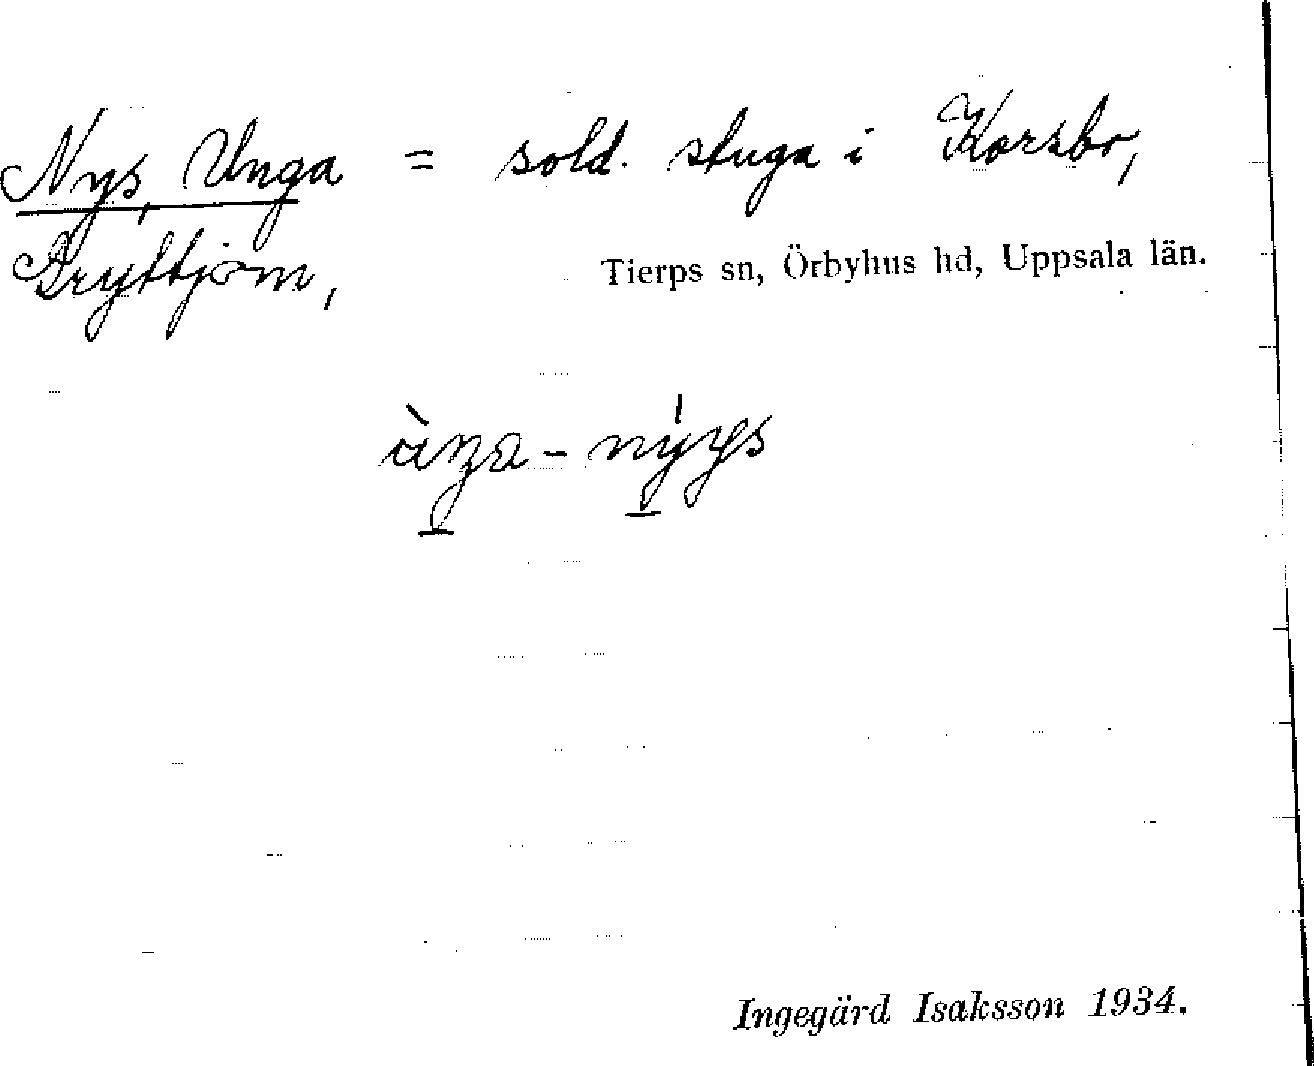 Nys, Unga = sold. stuga i Korsbo,
Gryttjom, Tierps sn, Örbyhus hd, Uppsala län.
Ingegärd Isaksson 1934.